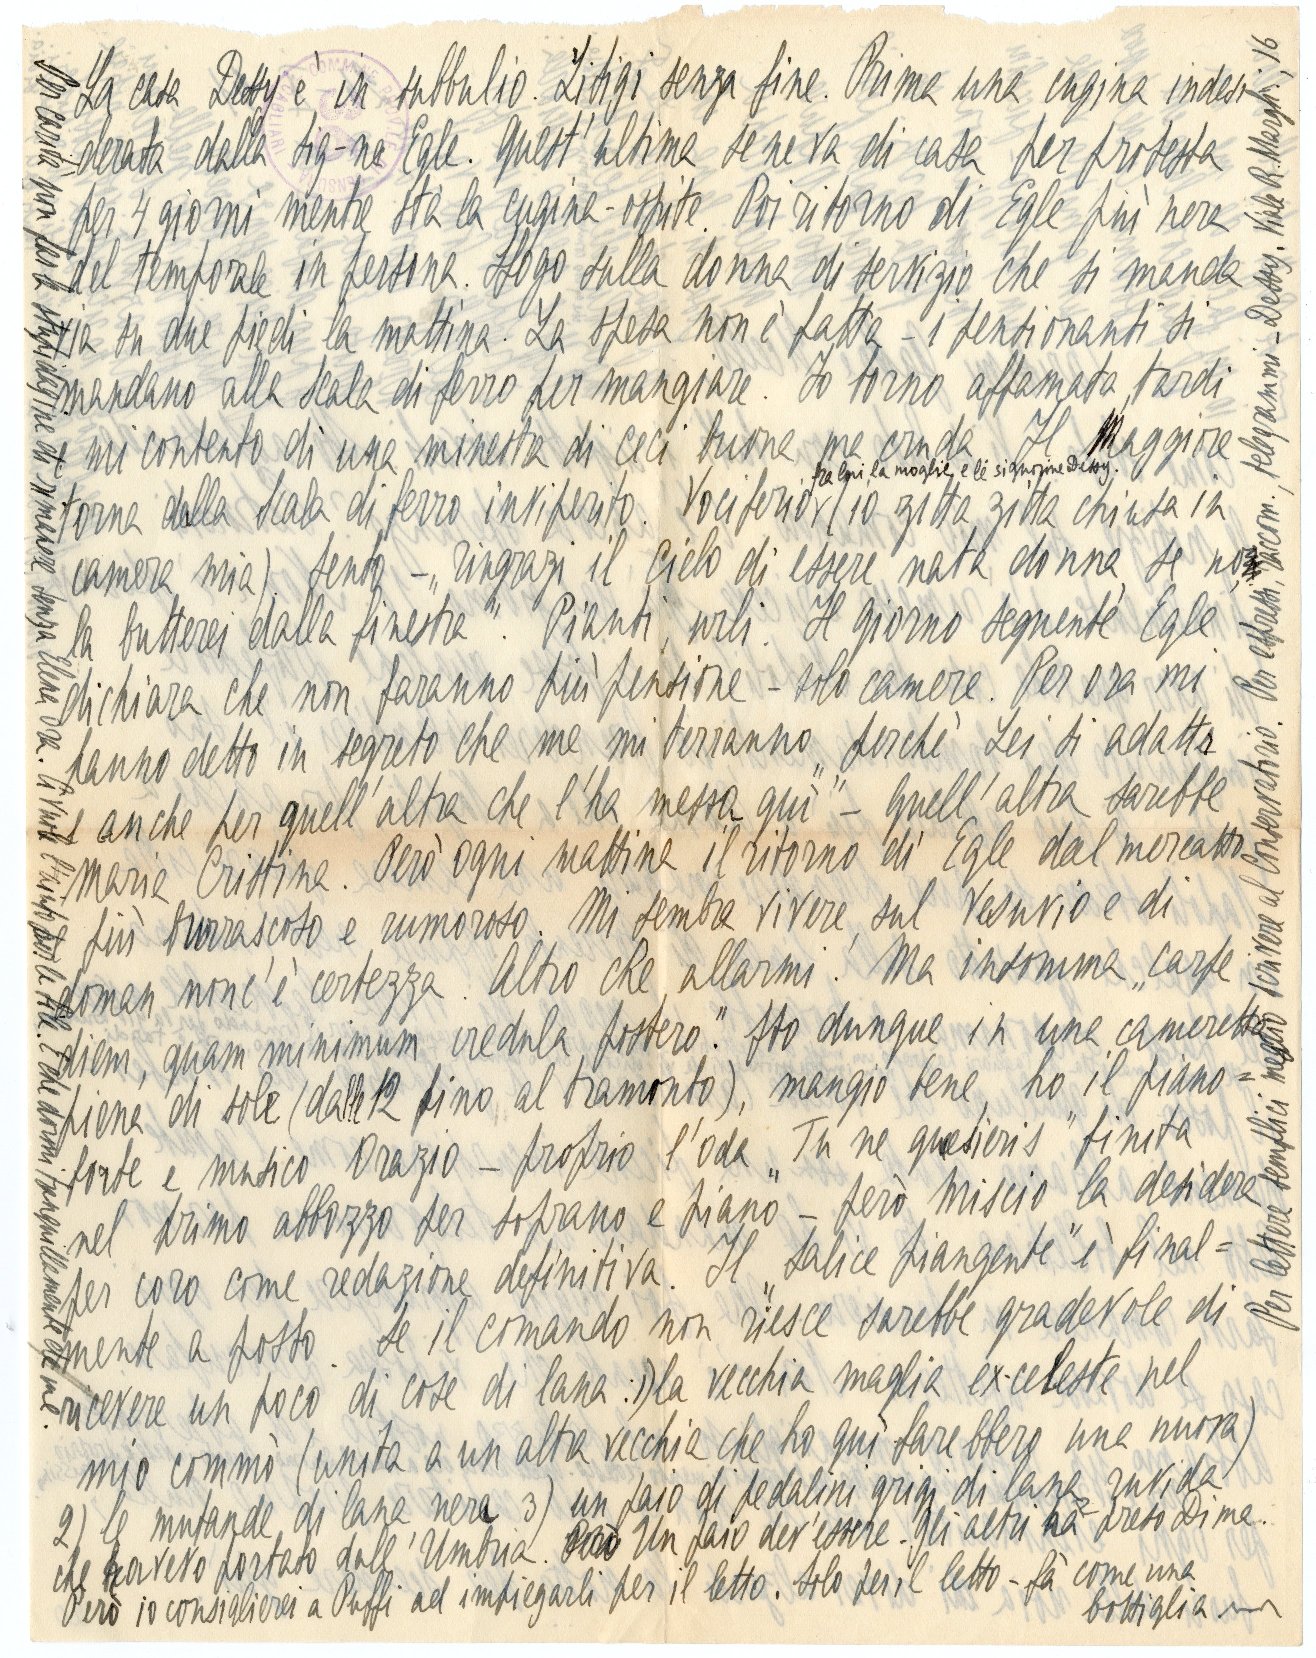 La casa Dessy è in subbulio. Litigi senza fine. Prima una cugina indesi
=derata dalla sig-na Egle. Quest'ultima se ne va di casa per protesta
per 4 giorni mentre sta la cugina-ospite. Poi ritorno di Egle più nera
del temporale in persona. Sfogo sulla donna di servizio che si manda
via su due piedi la mattina. La spesa non è fatta - i pensionanti si
mandano alla Scala di ferro per mangiare. Io torno affamata, tardi
e mi contento di una minestra di ceci buona ma cruda. Il Maggiore
fra lui, la moglie, e le signorine Dessy.
torna dalla Scala di ferro inviperito. Vociferio (io zitta zitta chiusa in
camera mia) sento - „ringrazi il Cielo di essere nata donna, se no
la butterei dalla finestra". Pianti, urli. Il giorno seguente Egle
dichiara che non faranno più pensione - solo camere. Per ora mi
hanno detto in segreto che me mi terranno „perchè Lei si adatta
e anche per quell'altra che l'ha messa qui" - Quell'altra sarebbe
Maria Cristina. Però ogni mattina il ritorno di Egle dal mercato
più burrascoso e rumoroso. Mi sembra vivere sul Vesuvio e di
doman non c'è certezza. Altro che allarmi! Ma insomma „carpe
diem, quam minimum credula postero". Sto dunque in una cameretta
piena di sole (dalle 12 fino al tramonto), mangio bene, ho il piano=
forte e musico Orazio - proprio l'oda „Tu ne quesieris" finita
nel primo abbozzo per soprano e piano - però Miscio la desidera
per coro come redazione definitiva. Il „Salice piangente" è final=
mente a posto. Se il comando non riesce sarebbe gradevole di
ricevere un poco di cose di lana: 1) la vecchia maglia ex-celeste nel
mio commò (unita a un altra vecchia che ho qui farebbero una nuova)
2) le mutande di lana nera 3) un paio di pedalini grigi di lana ruvida
che avevo portato dall'Umbria. Un paio dev'essere. Gli altri ha preso Dima.
Però io consiglierei a Puffi ad impiegarli per il letto. Solo per il letto - fà come una
bottiglia
Per carità non far la stupidagine di rimanere senza Elena ora. Ci vuole l'aiuto E che dormi tranquillamente di me.
Per lettere semplici meglio scrivere al Conservatorio. Per espressi, raccom., telegrammi - Dessy. Viale R. Margh., 16